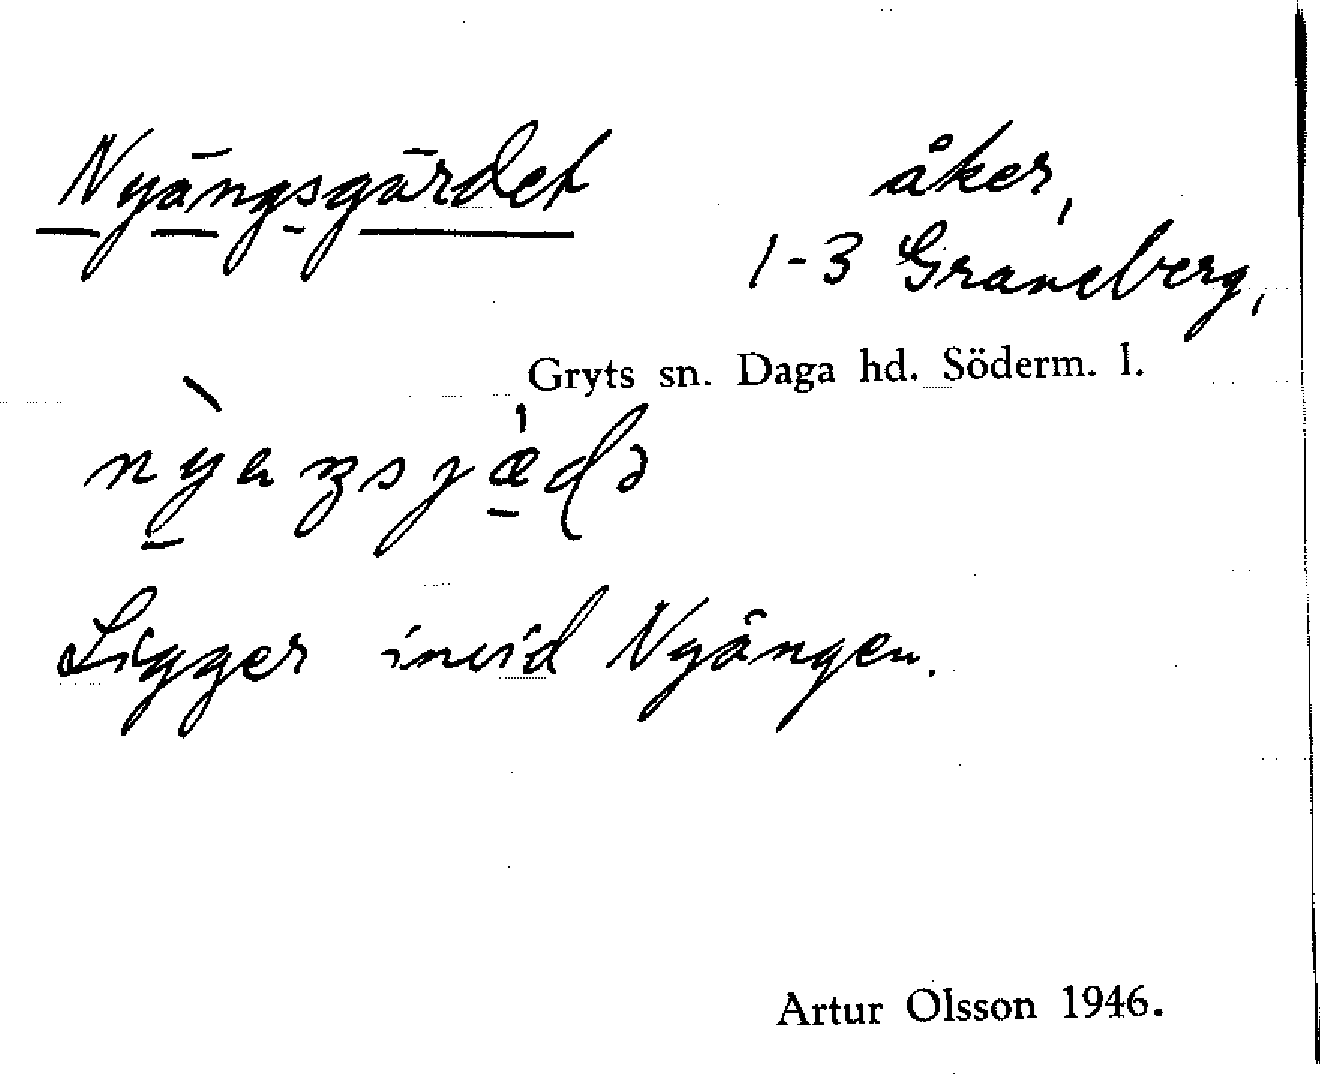 Nyängsgärdet
åker,
1-3 Graneberg,
Gryts sn. Daga hd. Söderm. l.
Ligger invid Nyängen.
Artur Olsson 1946.